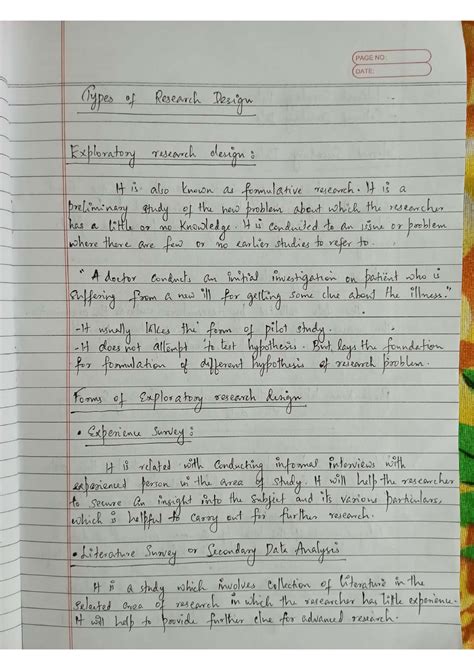 PAGE NO:
DATE:
Types of Research Design
Exploratory research design :
It is also known as formulative research. It is a
preliminary study of the new problem about which the researcher
has a little or no knowledge. It is conducted to an issue or problem
where there are few or no earlier studies to refer to.
" A doctor conducts an initial investigation on patient who is
suffering from a new ill for getting some clue about the illness."
- It usually takes the form of pilot study.
- It does not attempt to test hypothesis. But, lays the foundation
for formulation of different hypothesis of research problem.
Forms of Exploratory research design
• Experience Survey :
It is related with conducting informal interviews with
experienced person in the area of study. It will help the researcher
to secure an insight into the subject and its various particulars,
which is helpful to carry out for further research.
• Literature Survey or Secondary Data Analysis
It is a study which involves collection of literature in the
selected area of research in which the researcher has little experience.
It will help to provide further clue for advanced research.